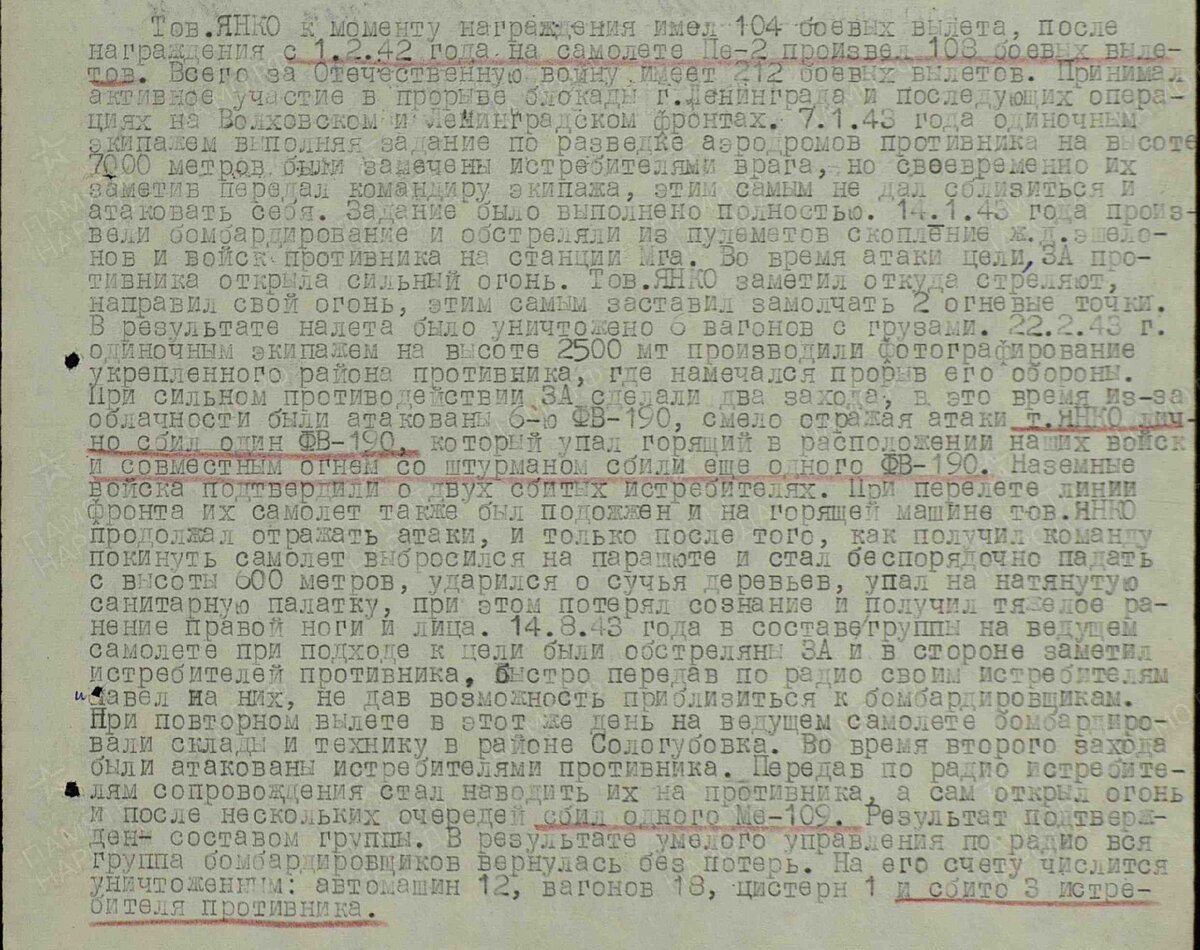 Тов.ЯНКО к моменту награждения имел 104 боевых вылета, после
награждения с 1.2.42 года на самолете Пе-2 произвел 108 боевых выле-
тов. Всего за Отечественную войну имеет 212 боевых вылетов. Принимал
активное участие в прорыве блокады г.Ленинграда и последующих опера-
циях на Волховском и Ленинградском фронтах. 7.1.43 года одиночным
экипажем выполняя задание по разведке аэродромов противника на высоте
7000 метров были замечены истребителями врага, но своевременно их
заметив передал командиру экипажа, этим самым не дал сблизиться и
атаковать себя. Задание было выполнено полностью. 14.1.43 года произ-
вели бомбардирование и обстреляли из пулеметов скопление ж.д.эшело-
нов и войск противника на станции Мга. Во время атаки цели, ЗА про-
тивника открыла сильный огонь. Тов.ЯНКО заметил откуда стреляют,
направил свой огонь, этим самым заставил замолчать 2 огневые точки.
В результате налета было уничтожено 6 вагонов с грузами. 22.2.43 г.
одиночным экипажем на высоте 2500 мт производили фотографирование
укрепленного района противника, где намечался прорыв его обороны.
При сильном противодействии ЗА сделали два захода, в это время из-за
облачности были атакованы 6-ю ФВ-190, смело отражая атаки т.ЯНКО лич-
но сбил один ФВ-190, который упал горящий в расположении наших войск
и совместным огнем со штурманом сбили еще одного ФВ-190. Наземные
войска подтвердили о двух сбитых истребителях. При перелете линии
фронта их самолет также был подожжен и на горящей машине тов.ЯНКО
продолжал отражать атаки, и только после того, как получил команду
покинуть самолет выбросился на парашюте и стал беспорядочно падать
с высоты 600 метров, ударился о сучья деревьев, упал на натянутую
санитарную палатку, при этом потерял сознание и получил тяжелое ра-
нение правой ноги и лица. 14.8.43 года в составе группы на ведущем
самолете при подходе к цели были обстреляны ЗА и в стороне заметил
истребителей противника, быстро передав по радио своим истребителям
и навел на них, не дав возможность приблизиться к бомбардировщикам.
При повторном вылете в этот же день на ведущем самолете бомбардиро-
вали склады и технику в районе Сологубовка. Во время второго захода
были атакованы истребителями противника. Передав по радио истребите-
лям сопровождения стал наводить их на противника, а сам открыл огонь
и после нескольких очередей сбил одного Ме-109. Результат подтверж-
ден- составом группы. В результате умелого управления по радио вся
группа бомбардировщиков вернулась без потерь. На его счету числится
уничтоженным: автомашин 12, вагонов 18, цистерн 1 и сбито 3 истре-
бителя противника.